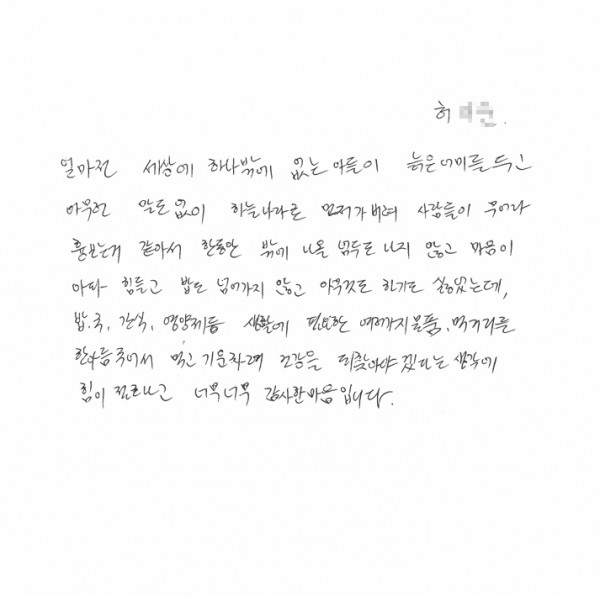 허
얼마전 세상에 하나밖에 없는 아들이 늙은 어미를 두고
아무런 말도 없이 하늘나라로 먼저가버려 사람들이 무어라
흉보는거 같아서 한동안 밖에 나올 엄두도 나지 않고 마음이
아파 힘들고 밥도 넘어가지 않고 아무것도 하기도 싫었는데,
밥.국, 간식, 영양제등 생활에 필요한 여러가지물품, 먹거리를
한아름 주어서 먹고 기운차려 건강을 되찾아야 겠다는 생각에
힘이 절로나고 너무너무 감사한마음입니다.